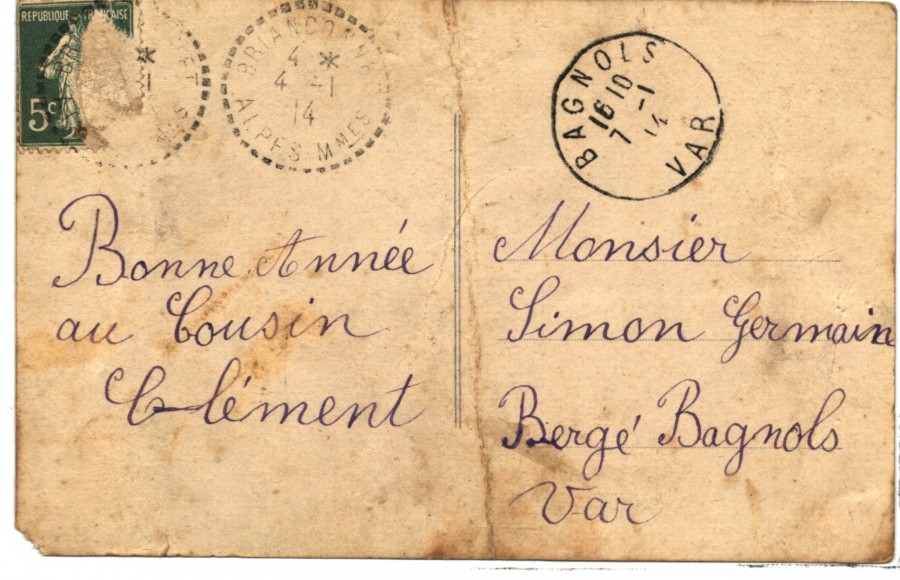 REPUBLIQUE FRANÇAISE
5c
BRIANÇONNET
4 *
4 -1
14
ALPES Mmes
BAGNOLS
16 10
7 -1
14
VAR
Bonne Année
au Cousin
Clément
Monsier
Simon Germaine
Bergé Bagnols
Var